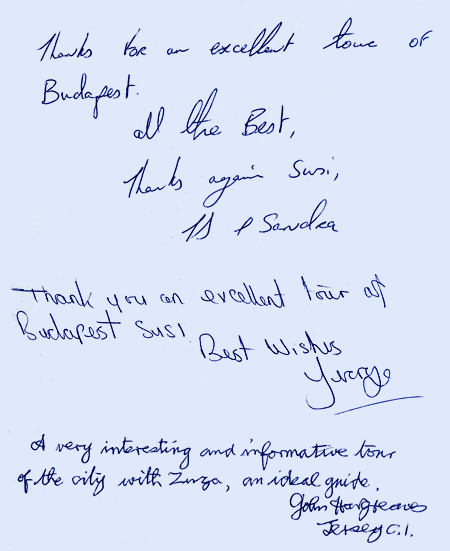 Thanks for an excellent tour of
Budapest.
all the Best,
Thanks again Susi,
& Sandra
Thank you on excellent tour of
Budapest Susi
Best Wishes
A very interesting and informative tour
of the city with Zuzsa, an ideal guide.
John Hargreaves
Jersey C.I.